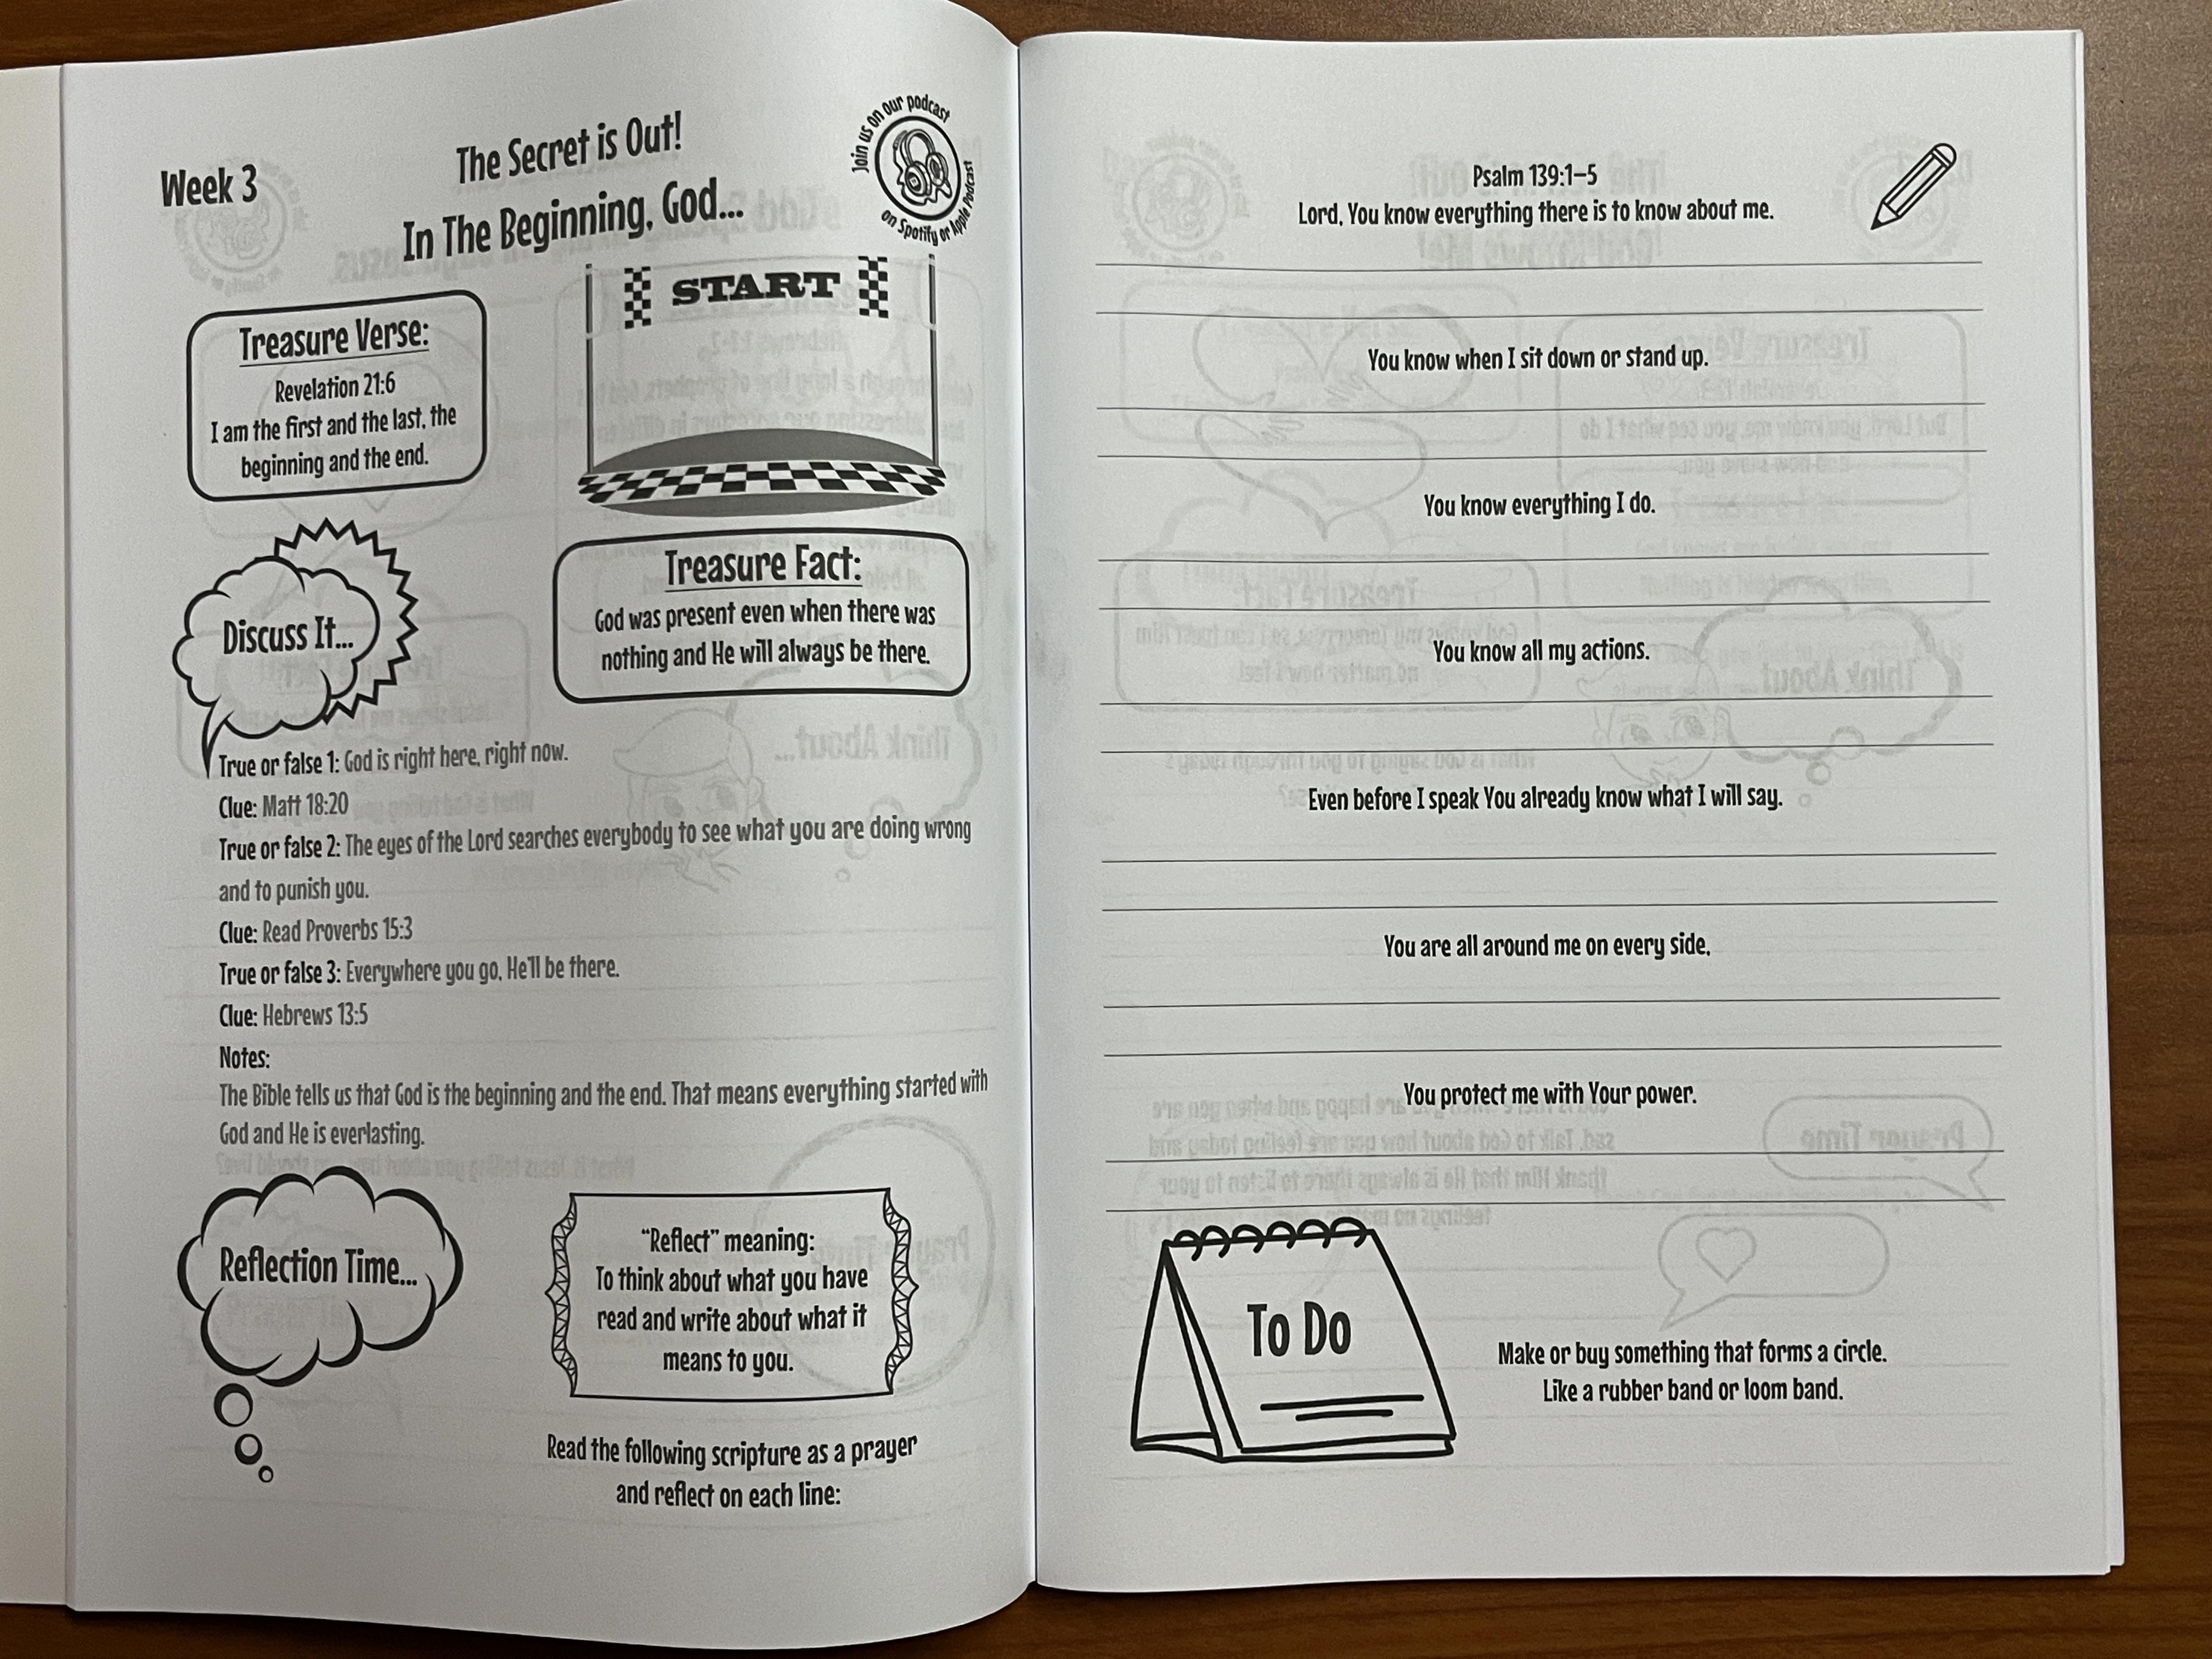 Week 3
The Secret is Out!
In The Beginning, God...
Join us on our podcast
on Spotify or Apple Podcast
START
Treasure Verse:
Revelation 21:6
I am the first and the last, the
beginning and the end.
Discuss It...
Treasure Fact:
God was present even when there was
nothing and He will always be there.
True or false 1: God is right here, right now.
Clue: Matt 18:20
True or false 2: The eyes of the Lord searches everybody to see what you are doing wrong
and to punish you.
Clue: Read Proverbs 15:3
True or false 3: Everywhere you go, He'll be there.
Clue: Hebrews 13:5
Notes:
The Bible tells us that God is the beginning and the end. That means everything started with
God and He is everlasting.
Reflection Time...
“Reflect” meaning:
To think about what you have
read and write about what it
means to you.
Read the following scripture as a prayer
and reflect on each line:
Psalm 139:1–5
Lord, You know everything there is to know about me.
You know when I sit down or stand up.
You know everything I do.
You know all my actions.
Even before I speak You already know what I will say.
You are all around me on every side,
You protect me with Your power.
To Do
Make or buy something that forms a circle.
Like a rubber band or loom band.